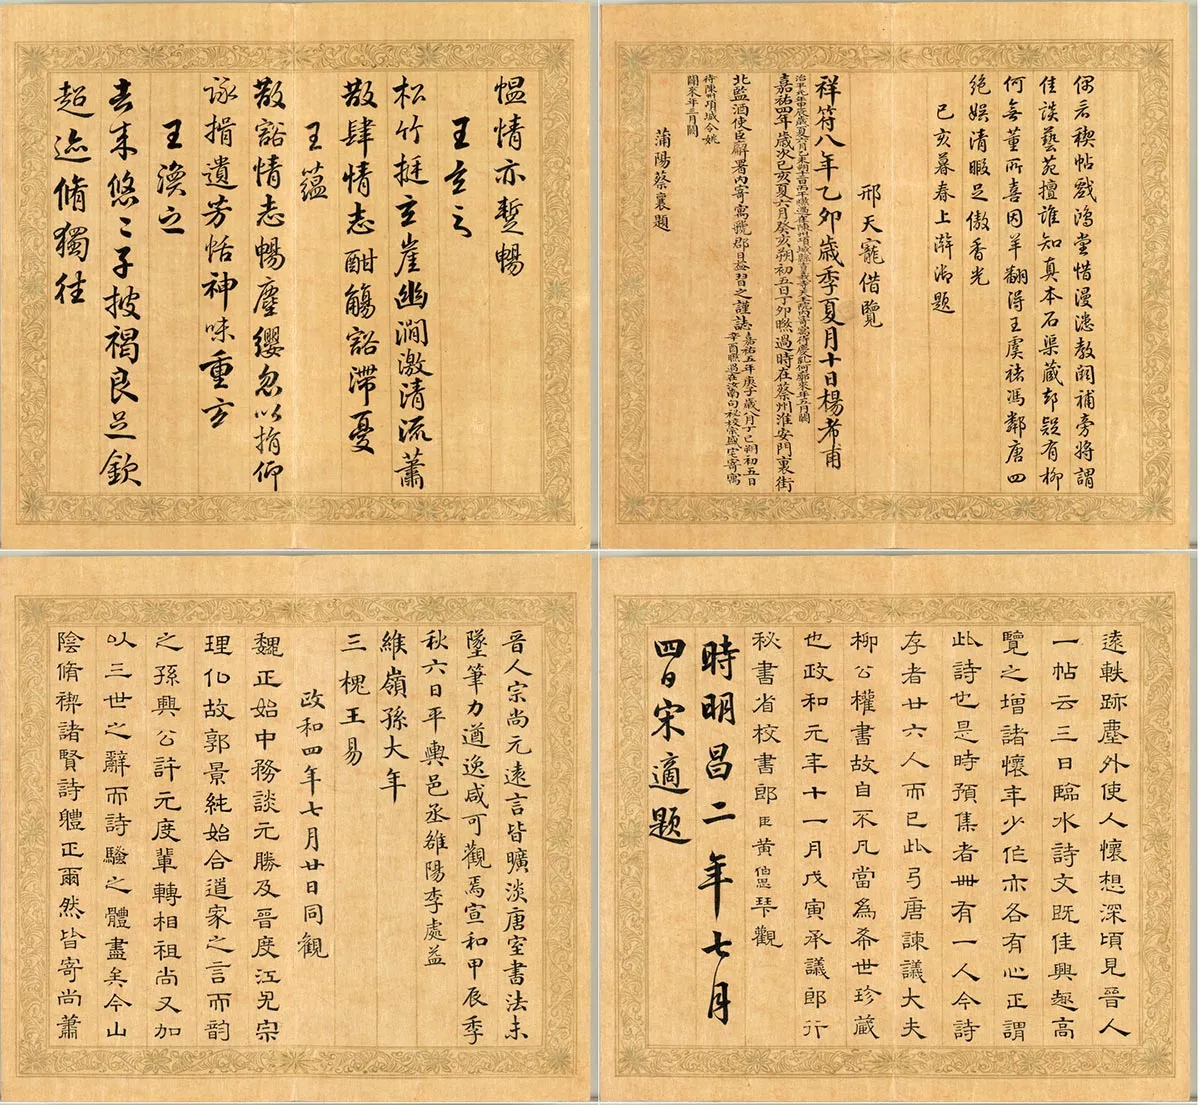 慍情亦蹔暢
王玄之
松竹挺玄崖幽澗激清流蕭
散肆情志酣觴豁滯憂
王蘊
散豁情志暢塵纓忽以捐仰
詠揖遺芳恬神味重玄
王渙之
去來悠〻子披褐良足欽
超迹脩獨往
偶看禊帖戲鴻堂惜漫漶教闕補旁將謂
佳談藝苑擅誰知真本石渠藏却疑有柳
何無董所喜因羊翻得王虞褚馮鄰唐四
絕娛清暇足傲香光
己亥暮春上澣御題
邢天寵借覽
祥符八年乙卯歲季夏月十日楊希甫
治平元年甲辰歲夏六月乙未朔十二日丙午曬過在陳州項城縣
嘉祐四年歲次己亥夏六月癸亥朔初五日丁卯曬過時在蔡州淮安門裏街
北監酒使臣廨署內寄寓虢郡日益習之謹誌
嘉祐五年庚子歲八月丁巳朔初五日
辛酉曬過在汝南句秘校宗盛宅寄寓
待陳州項城令姚
闢來年三月闕
蒲陽蔡襄題
晉人宗尚元遠言皆曠淡唐室書法未
墜筆力遒逸咸可觀焉宣和甲辰季
秋六日平輿邑丞雒陽李處益
維嶺孫大年
三槐王易
政和四年七月廿日同觀
魏正始中務談元勝及晉度江尤宗
理仏故郭景純始合道家之言而韵
之孫興公許元度輩轉相祖尚又加
以三世之辭而詩騷之體盡矣今山
陰脩禊諸賢詩體正爾然皆寄尚蕭
遠軼跡塵外使人懷想深頃見晉人
一帖云三日臨水詩文既佳興趣高
覽之增諸懷年少作亦各有心正謂
此詩也是時預集者卌有一人今詩
存者廿六人而已此弓唐諫議大夫
柳公權書故自不凡當為希世珍藏
也政和元年十一月戊寅承議郎行
秘書省校書郎臣黃伯思琹觀
時明昌二年七月
四日宋適題